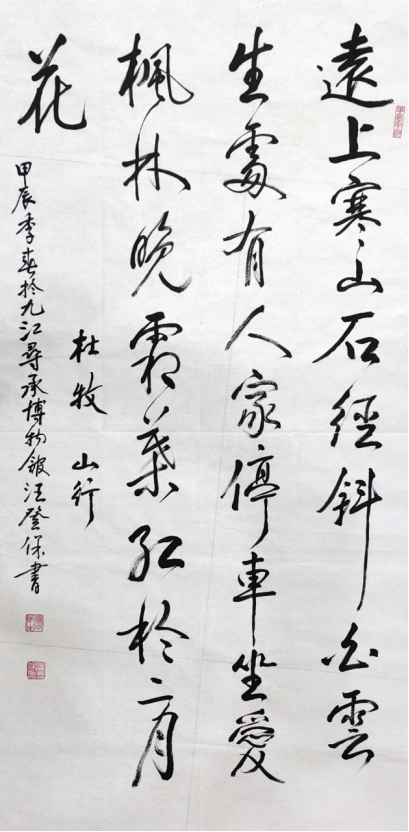 遠上寒山石徑斜白雲
生處有人家停車坐愛
楓林晚霜葉紅於二月
花
杜牧 山行
甲辰季春於九江尋承博物館汪登保書